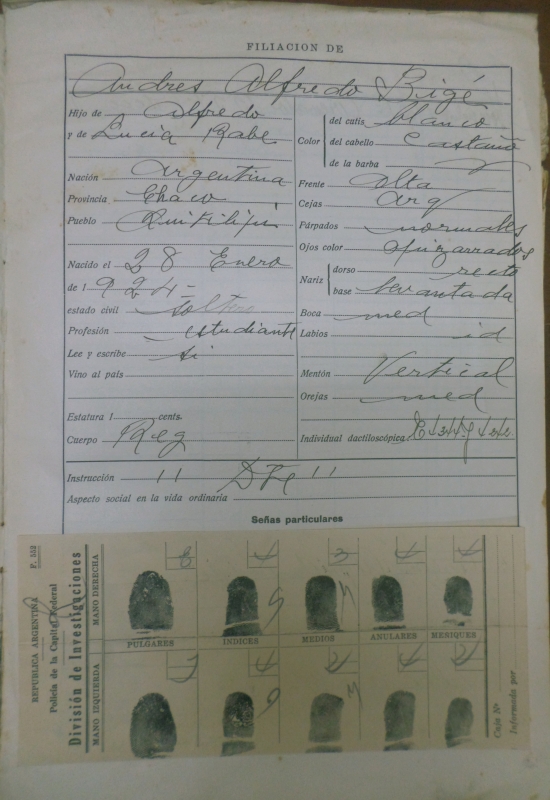 FILIACION DE
Andres Alfredo Bigé
Hijo de Alfredo
y de Lucia Rabe
Nación Argentina
Provincia Chaco
Pueblo Quitilipi
Nacido el 28 Enero
de 1924-
estado civil soltero
Profesión estudiante
Lee y escribe si
Vino al país
Estatura 1 cents.
Cuerpo Reg
Color
del cutis blanco
del cabello Castaño
de la barba
Frente alta
Cejas arq
Párpados normales
Ojos color apizarrados
Nariz
dorso recto
base levantada
Boca med
Labios id
Mentón Vertical
Orejas med
Individual dactiloscópica
Instrucción
Aspecto social en la vida ordinaria
Señas particulares
REPUBLICA ARGENTINA
F. 552
Policía de la Capital Federal
División de Investigaciones
MANO DERECHA
MANO IZQUIERDA
PULGARES
INDICES
MEDIOS
ANULARES
MEÑIQUES
Caja Nº
Informada por